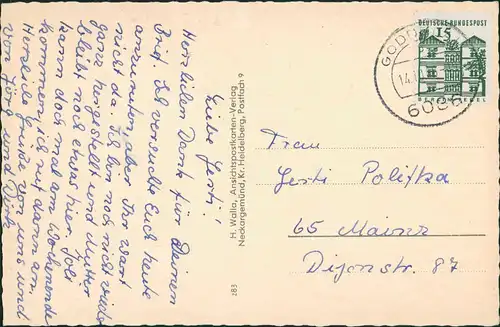 Liebe Gerti!
Herzlichen Dank für Deinen
Brief. Ich versuchte Euch heute
anzurufen, aber Ihr wart
nicht da. Ich bin noch nicht wieder
ganz hergestellt und Mutter
bleibt noch etwas hier. Jolf
kann doch mal am Wochenende
kommen, ich ruf dann an.
Herzliche Grüße von uns und
von Jörg und Dirk
H. Walla, Ansichtspostkarten-Verlag
Neckargemünd, Kr. Heidelberg, Postfach 9
283
DEUTSCHE BUNDESPOST
15
14.
Frau
Gerti Politka
65 Mainz
Dijonstr. 87